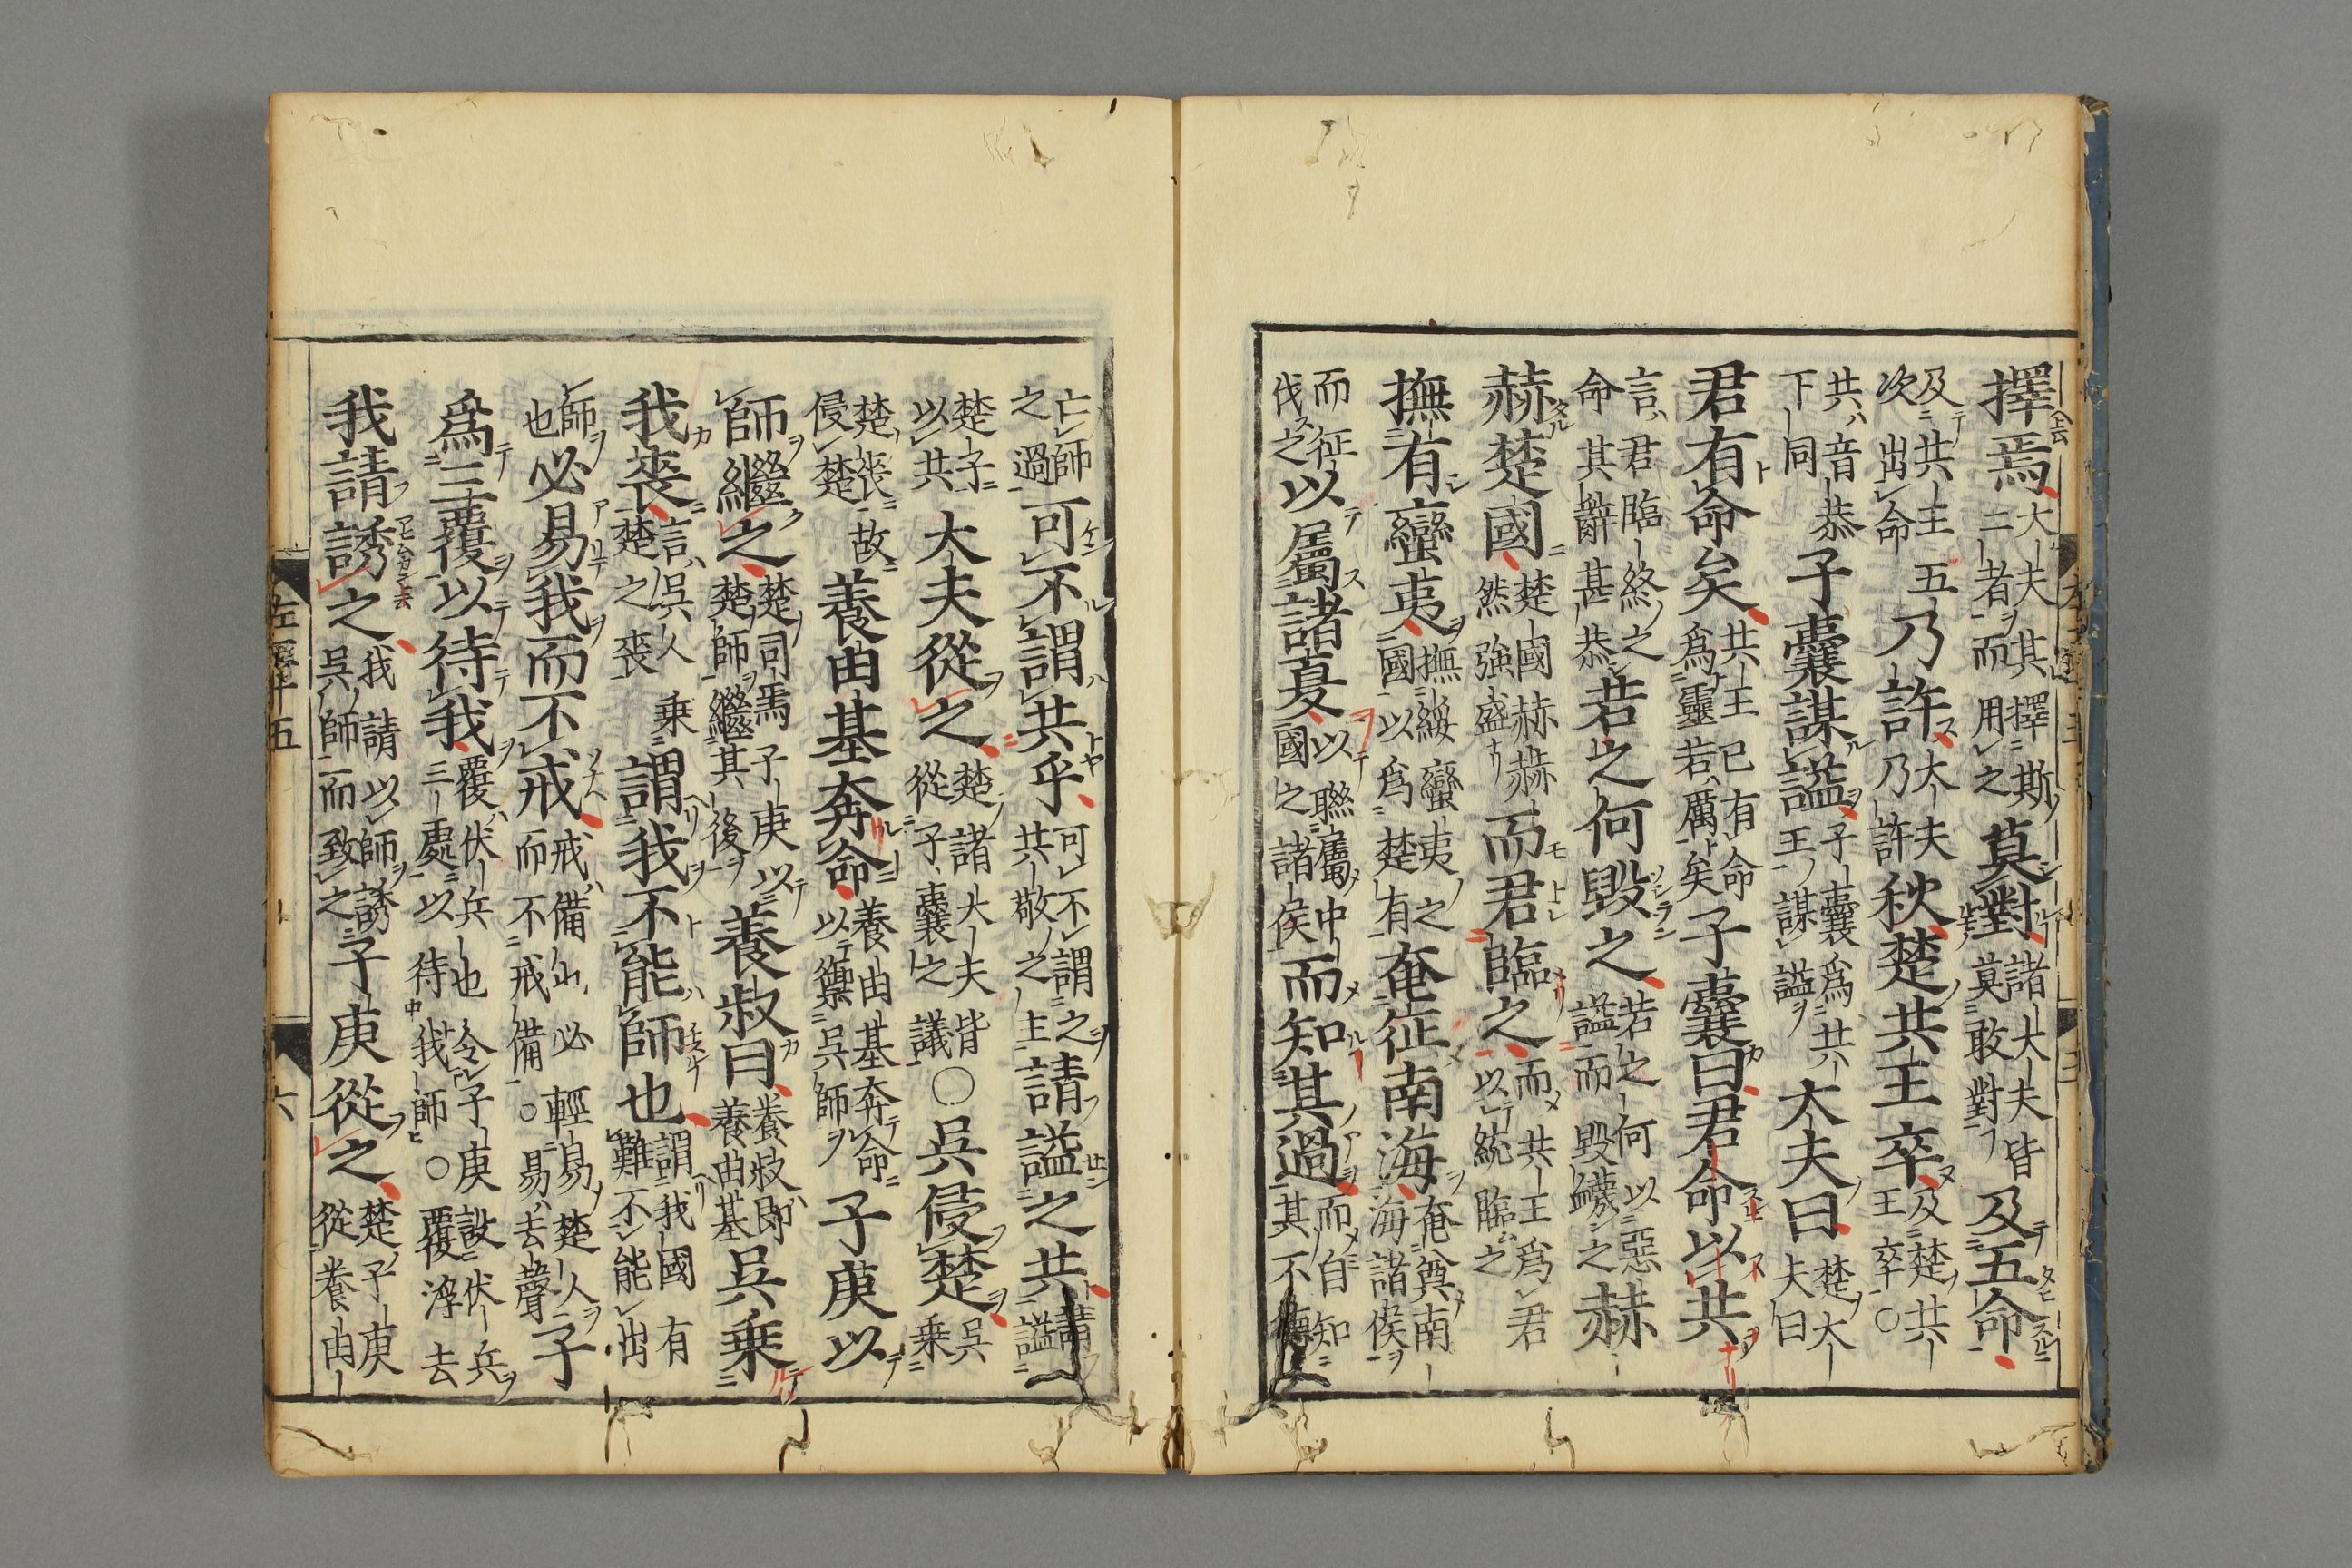 擇焉大夫其擇斯二者而用之莫對諸大夫皆莫敢對及五命
及共王五次出命乃許大夫乃許秋楚共王卒及楚共王卒○
共音恭下同子囊謀謚子囊爲共王謀謚大夫曰楚大夫曰
君有命矣共王已有命爲靈若厲矣子囊曰君命以共
言君臨終之命其辭甚恭若之何毀之若之何以惡謚而毀衊之赫
赫楚國楚國赫赫然強盛而君臨之而共王爲君以統臨之
撫有蠻夷撫綏蠻夷之國以爲楚有奄征南海奄奠南海諸侯
而征伐之以屬諸夏以聯屬中國之諸侯而知其過而自知其不德
亡師之過可不謂共乎可不謂之共敬之主請謚之共請謚
楚子以共大夫從之楚諸大夫皆從子囊之議○吳侵楚吳乗
楚喪故侵楚養由基奔命養由基奔命以禦吳師子庚以
師繼之楚司馬子庚以楚師繼其後養叔曰養叔即養由基吳乗
我喪言吳人乗楚之喪謂我不能師也謂我國有難不能出
師也必易我而不戒戒備也必輕易楚人而不戒備○易去聲子
爲三覆以待我覆伏兵也令子庚設伏兵三處以待我師○覆浮去
我請誘之我請以師誘吳師而致之子庚從之楚子庚從養由
左 十五
六